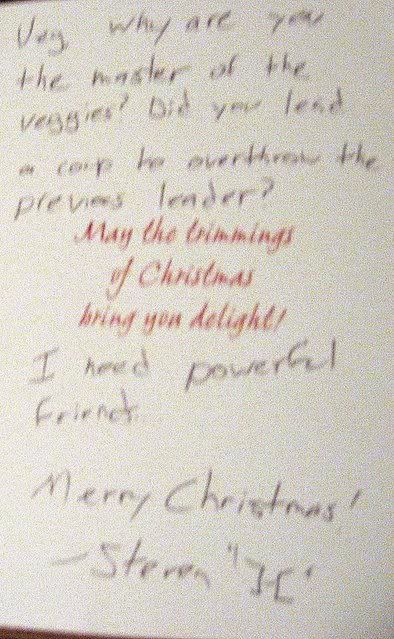 Veg, why are you
the master of the
veggies? Did you lead
a coup to overthrow the
previous leader?
May the trimmings
of Christmas
bring you delight!
I need powerful
friends.
Merry Christmas!
- Steven "}{"